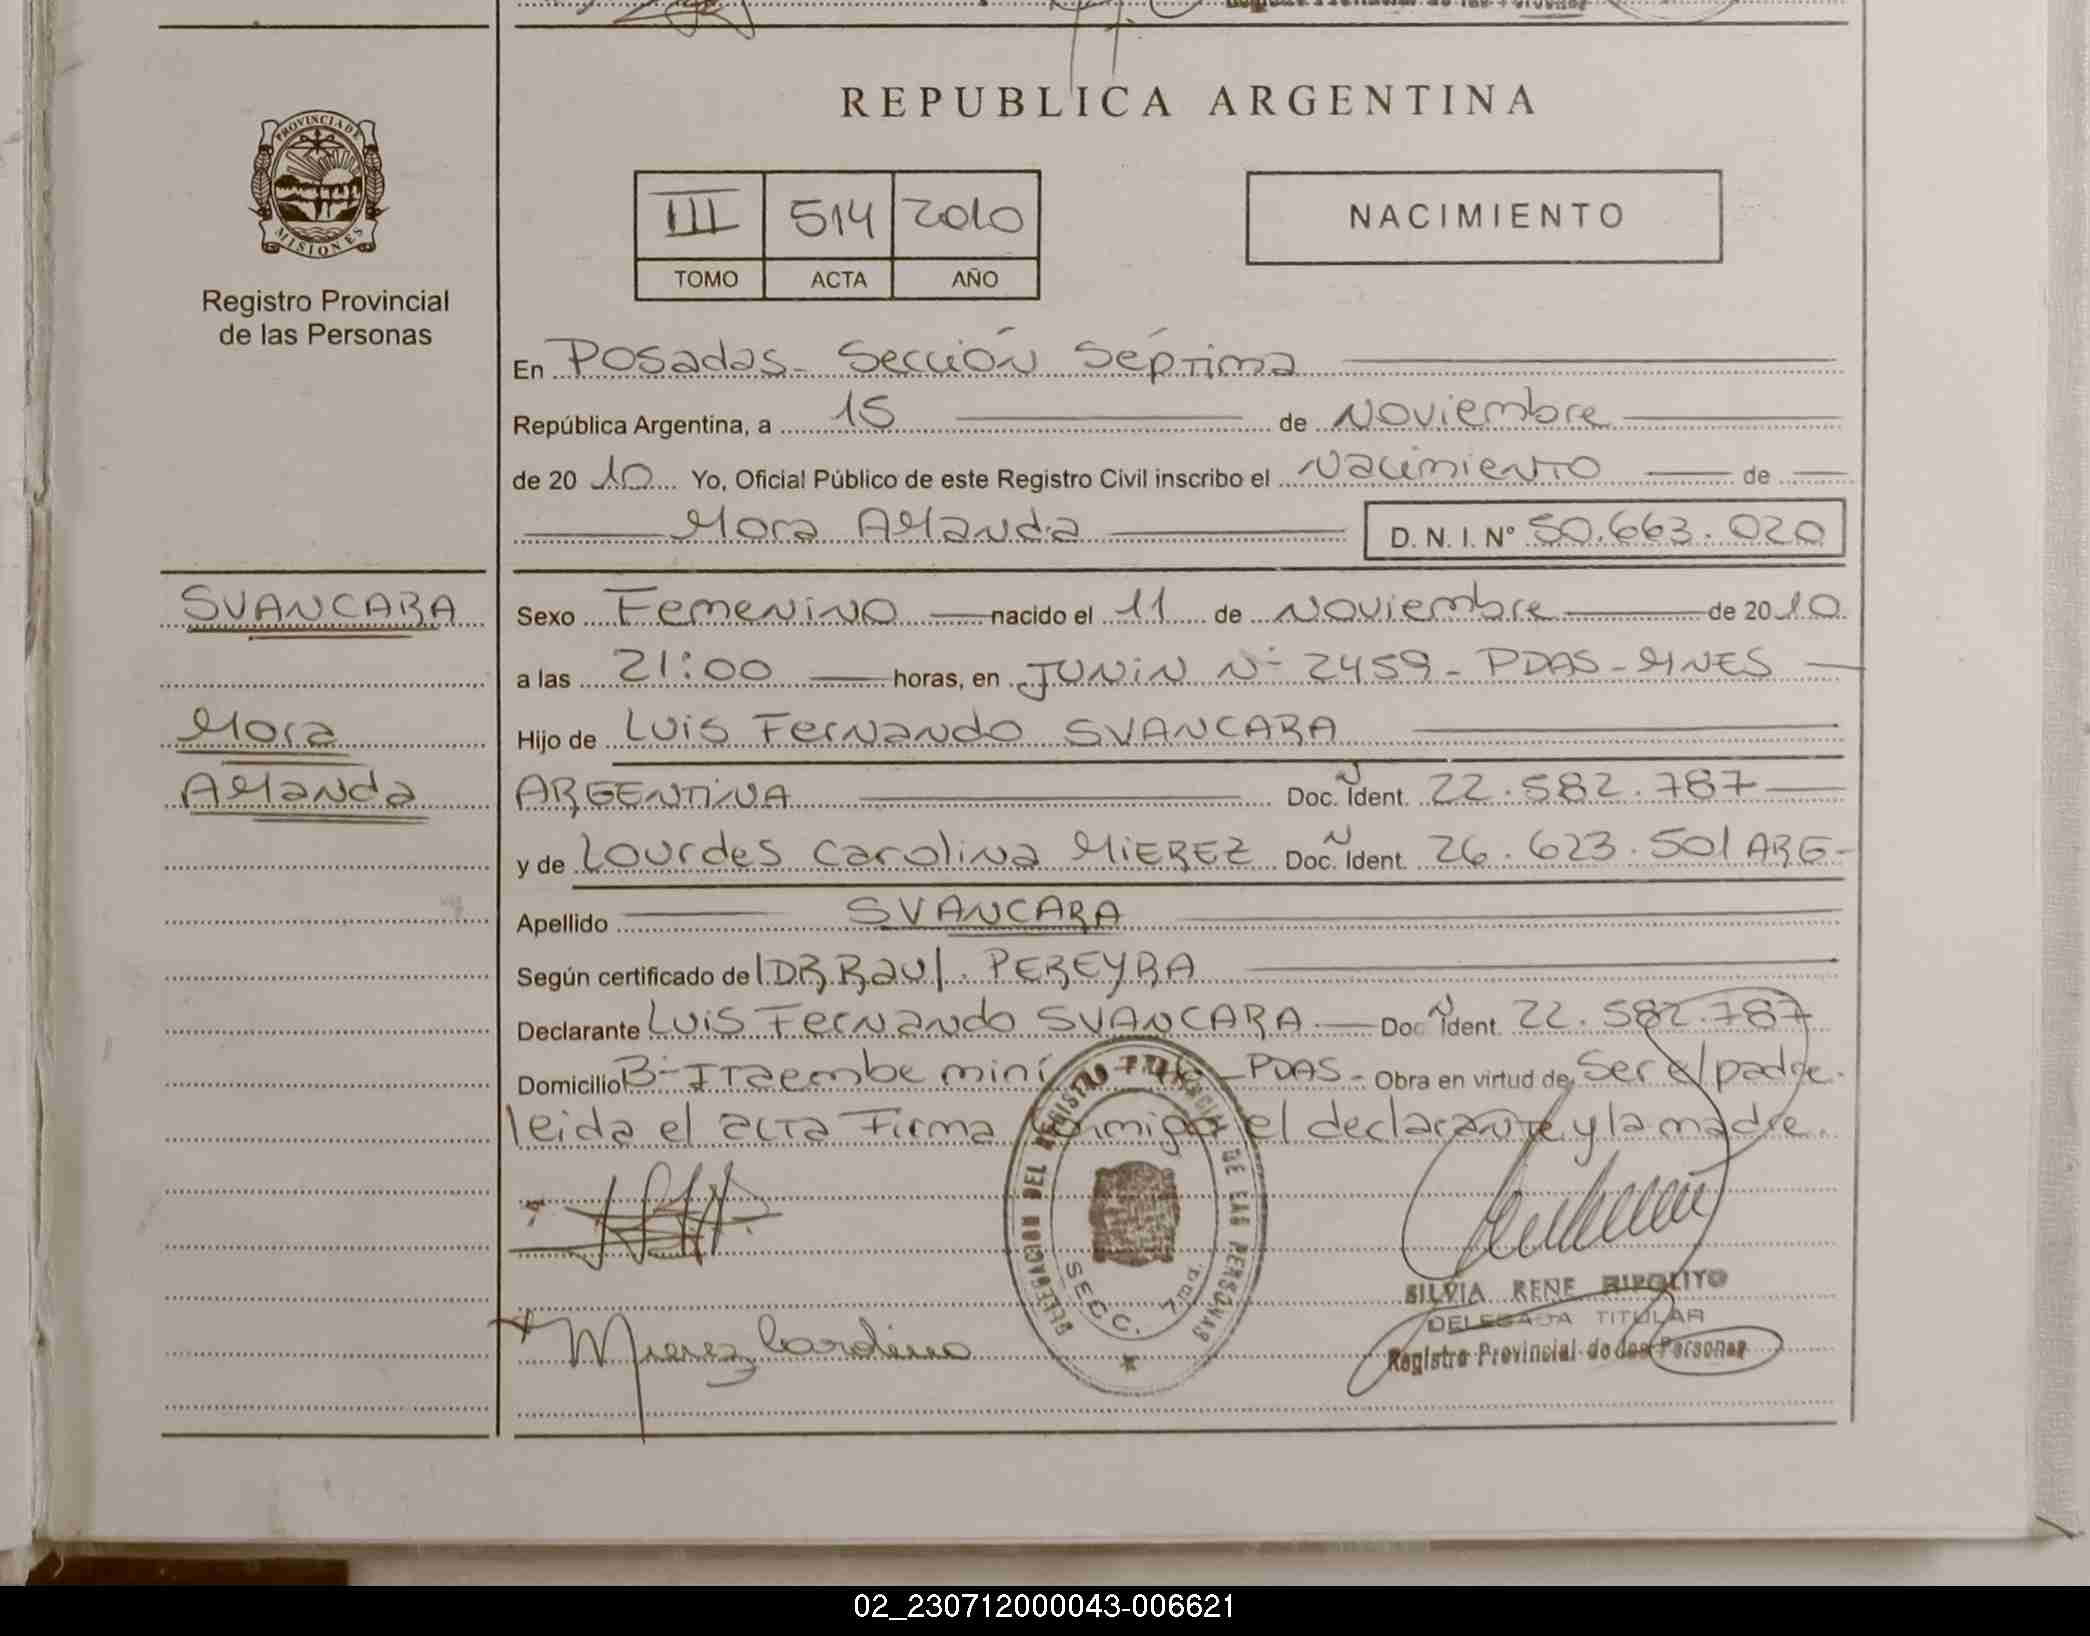 REPUBLICA ARGENTINA
PROVINCIA DE
MISIONES
Registro Provincial
de las Personas
III 514 2010
TOMO ACTA AÑO
NACIMIENTO
En Posadas - Sección Séptima
República Argentina, a 15 de Noviembre
de 2010 Yo, Oficial Público de este Registro Civil inscribo el Nacimiento de
Mora AManda D. N. I. Nº 50.663.020
SVANCARA
Mora
AManda
Sexo Femenino nacido el 11 de Noviembre de 2010
a las 21:00 horas, en JUNiN Nº 2459 - PDAS - MNES
Hijo de Luis Fernando SVANCARA
ARGENTiNA Doc. Ident. 22.582.787
y de Lourdes Carolina MiEREZ Doc. Ident. 26.623.501 ARG-
Apellido SVANCARA
Según certificado del DR Raul PEREYRA
Declarante Luis Fernando SVANCARA Doc. Ident. 22.582.787
Domicilio Bº Itaembe miní - PDAS - Obra en virtud de Ser el padre.
leida el acta Firma conmigo el declarante y la madre.
DELEGACION DEL REGISTRO PROVINCIAL DE LAS PERSONAS
SECC. 7
Mierez Carolina
SILVIA RENE RIPOLITO
DELEGADA TITULAR
Registro Provincial de las Personas
02_230712000043-006621